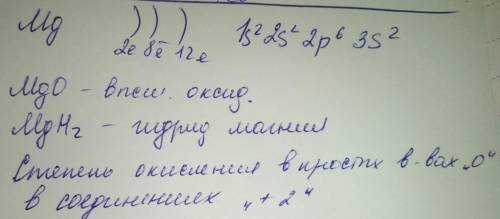 Mg ) ) ) 1s² 2s² 2p⁶ 3s²
2ē 8ē 12e
MgO - высш. оксид.
MgH₂ - гидрид магния
Степень окисления в простых в-вах „0“
в соединениях „+2“